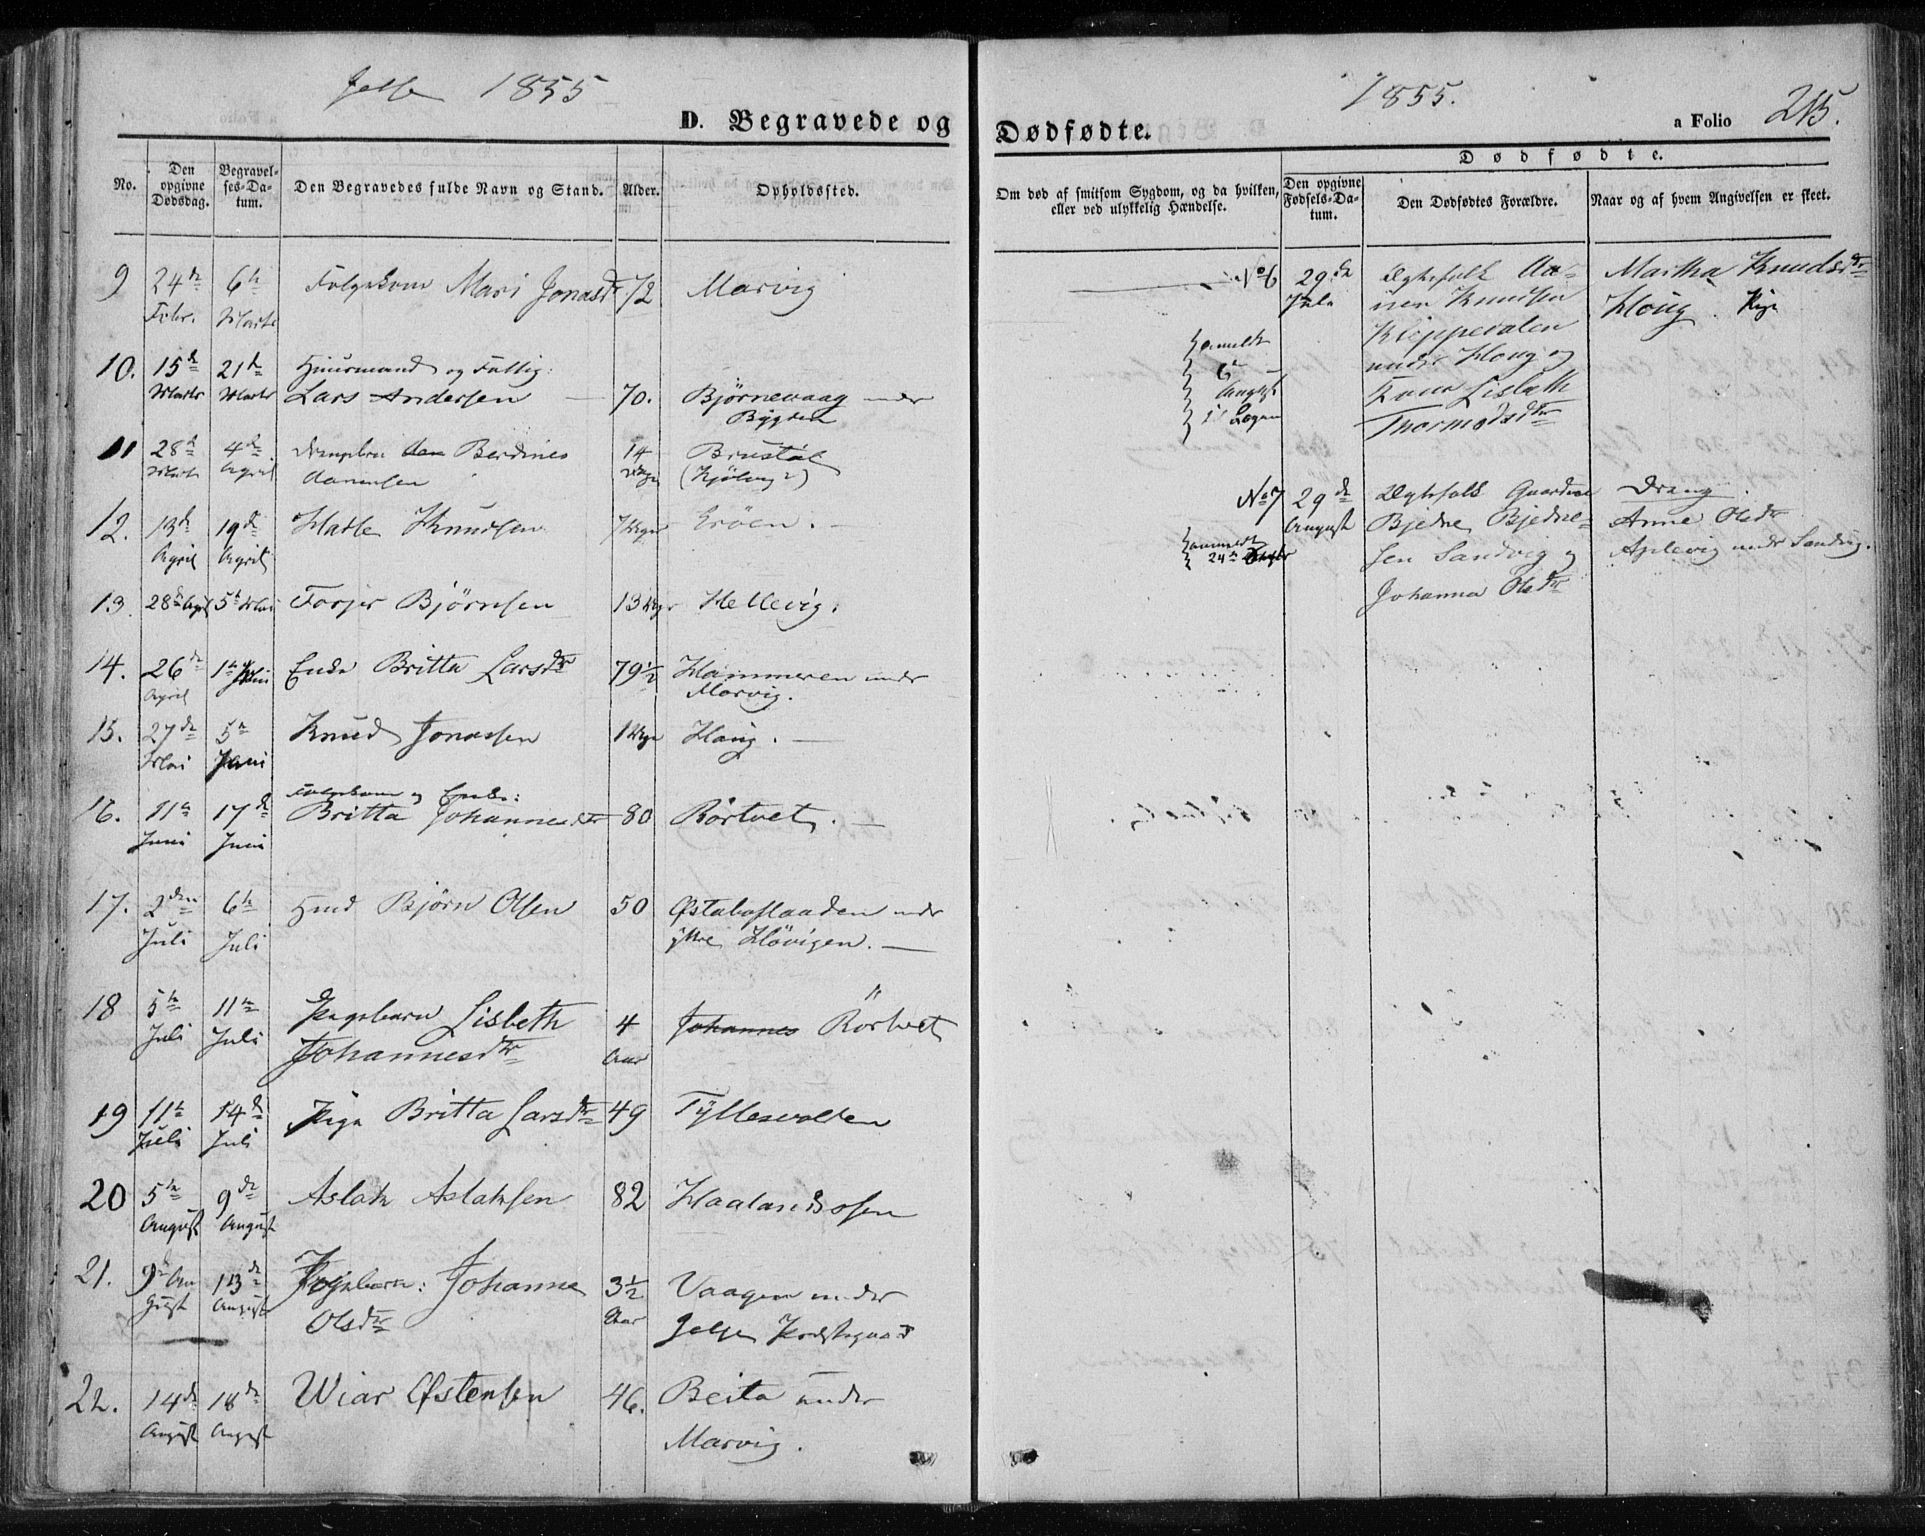 Jelse 1855
D. Begravede og
No.
Den opgivne Dødsdag.
Begravelses-Datum.
Den Begravedes fulde Navn og Stand.
Alder.
Opholdssted.
9 24de 6te Folgekone Mari Jonasdr 72 Marvig
Febr. Marts
10. 15de 21de Huusmand og Fattig:
Marts Marts Lars Andersen 70. Bjørnevaag under
Bygden
11 28de 4de Drengebrn Berdines 14 Brustøl
Marts April Aanensen Dage
12. 13de 19de Hatle Knudsen 7 Uger Erøen.
April April
13. 28de April 5te Mai Torjer Bjørnsen 13 Uger Hellevig.
14. 26de 1te Enke Britta Larsdr 79½ Hammeren under
April Marvig.
15. 27de 5te Knud Jonassen 1 Uge Haug.
Mai Juni
Folgekone og Enke:
16. 11te 17de Britta Johannesdtr 80 Rørtvet.
Juni Juni
17. 2den 6te Hmd Bjørn Olsen 50 Østabøflaaden under
Juli Juli ytre Høvigen.
18 5te 11te Pigebarn Lisbeth 4 Johannes Rörtvet
Juli Juli Johannesdtr Aar
19 11te 14de Pige Britta Larsdtr 49 Tyllesvolden
Juli Juli
20 5te 9de Aslak Aslaksen 82 Haalandsosen
August August
21. 9de Au 13de Pigebarn: Johanne 3½ Vaagen under
gust August Olsdtr Aar Jelse Præstegaard
22. 14de 18de Wiar Østensen 46. Beita under
August August Marvig.
1855.
Dødfødte.
a Folio 215.
Om død af smitsom Sygdom, og da hvilken,
eller ved ulykkelig Hændelse.
Dødfødte.
Den opgivne Fødsels-Datum.
Den Dødfødtes Forældre.
Naar og af hvem Angivelsen er skeet.
No 6 29de Ægtefolk Aa- Martha Knudsdtr
Juli nen Knudsen Houg. Pige
Kleppedalen
anmeldt under Houg og
6te Kone Lisbeth
August Thormodsdtr
No 7 29de Ægtefolk Gaardm Dreng.
August Bjedne Bjedne- Anne Olsdtr
anmeldt sen Sandvig og Aplevig under Sandvig.
24de Johanna Olsdtr